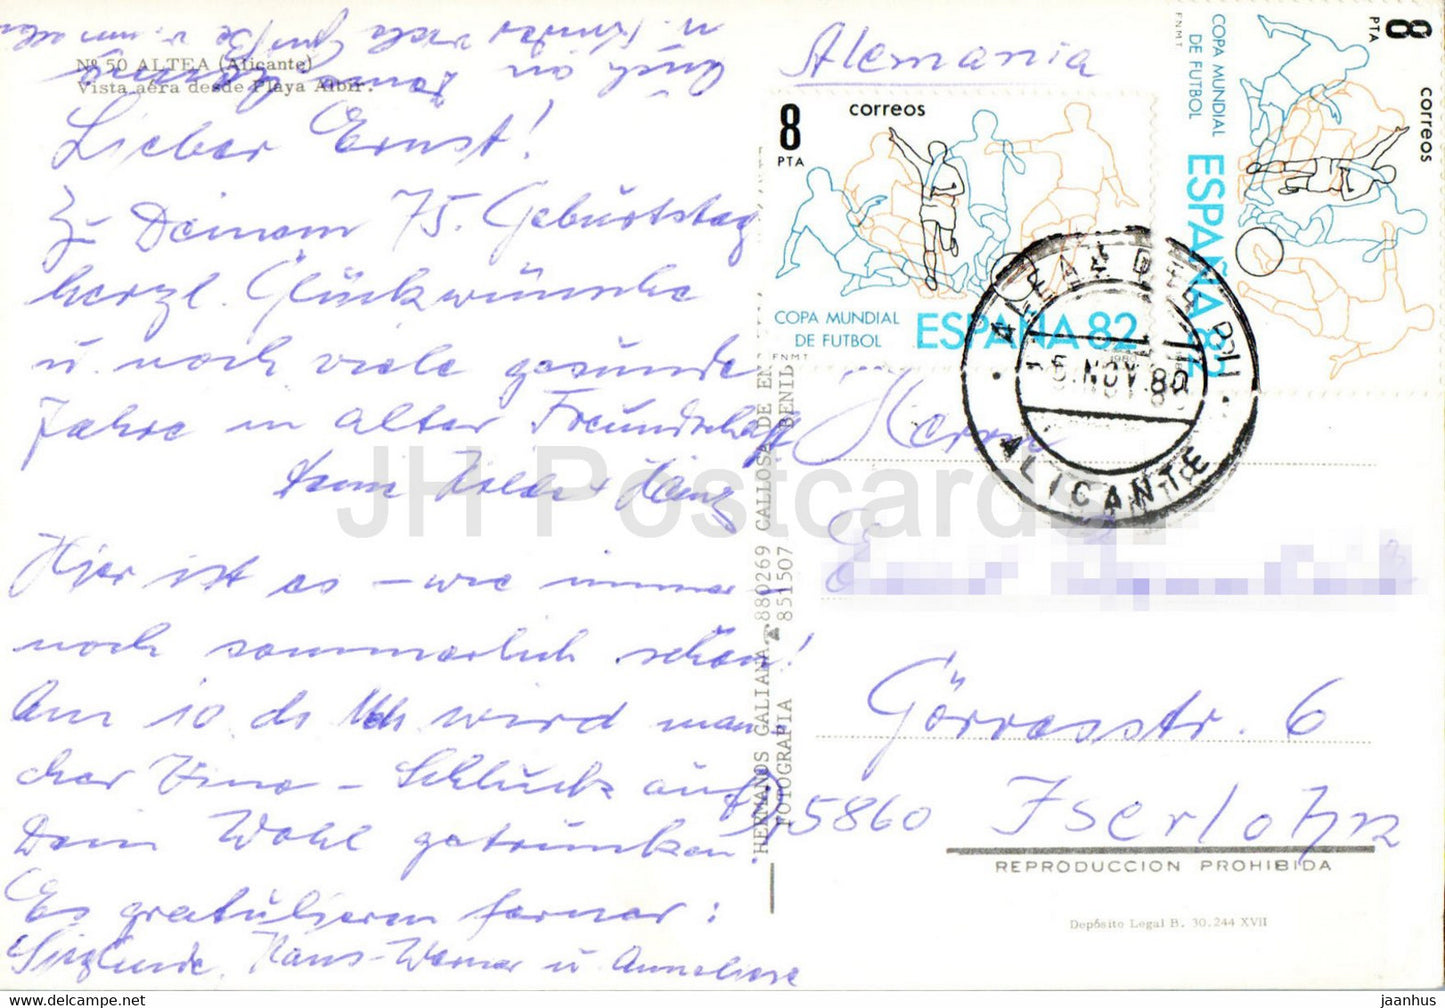 Nº 50 ALTEA (Alicante)
Vista aéra desde Playa Albir.
Lieber Ernst!
Zu Deinem 75. Geburtstag
herzl. Glückwünsche
u. noch viele gesunde
Jahre in alter Freundschaft
Heinz
Hier ist es – wie immer –
noch sommerlich schön!
Am 10. ds. Mts. wird man-
cher Vino-Schluck auf
Dein Wohl getrunken.
Es gratulieren ferner:
Sieglinde, Hans-Werner u. Anneliese
Auch an
u. Kinder viele Grüße v. uns allen
HERMANOS GALIANA
FOTOGRAFIA
880269 CALLOSA DE EN
851507 BENIL
Alemania
8 PTA
correos
COPA MUNDIAL
DE FUTBOL
ESPAÑA 82
FNMT
1980
8 PTA
correos
COPA MUNDIAL
DE FUTBOL
ESPAÑA 82
FNMT
ALFAZ DEL PI
5 NOV. 80
ALICANTE
Herrn
Görresstr. 6
D-5860 Iserlohn
REPRODUCCION PROHIBIDA
Depósito Legal B. 30.244 XVII
JH Postcards
hippostcard.com
jaanhus